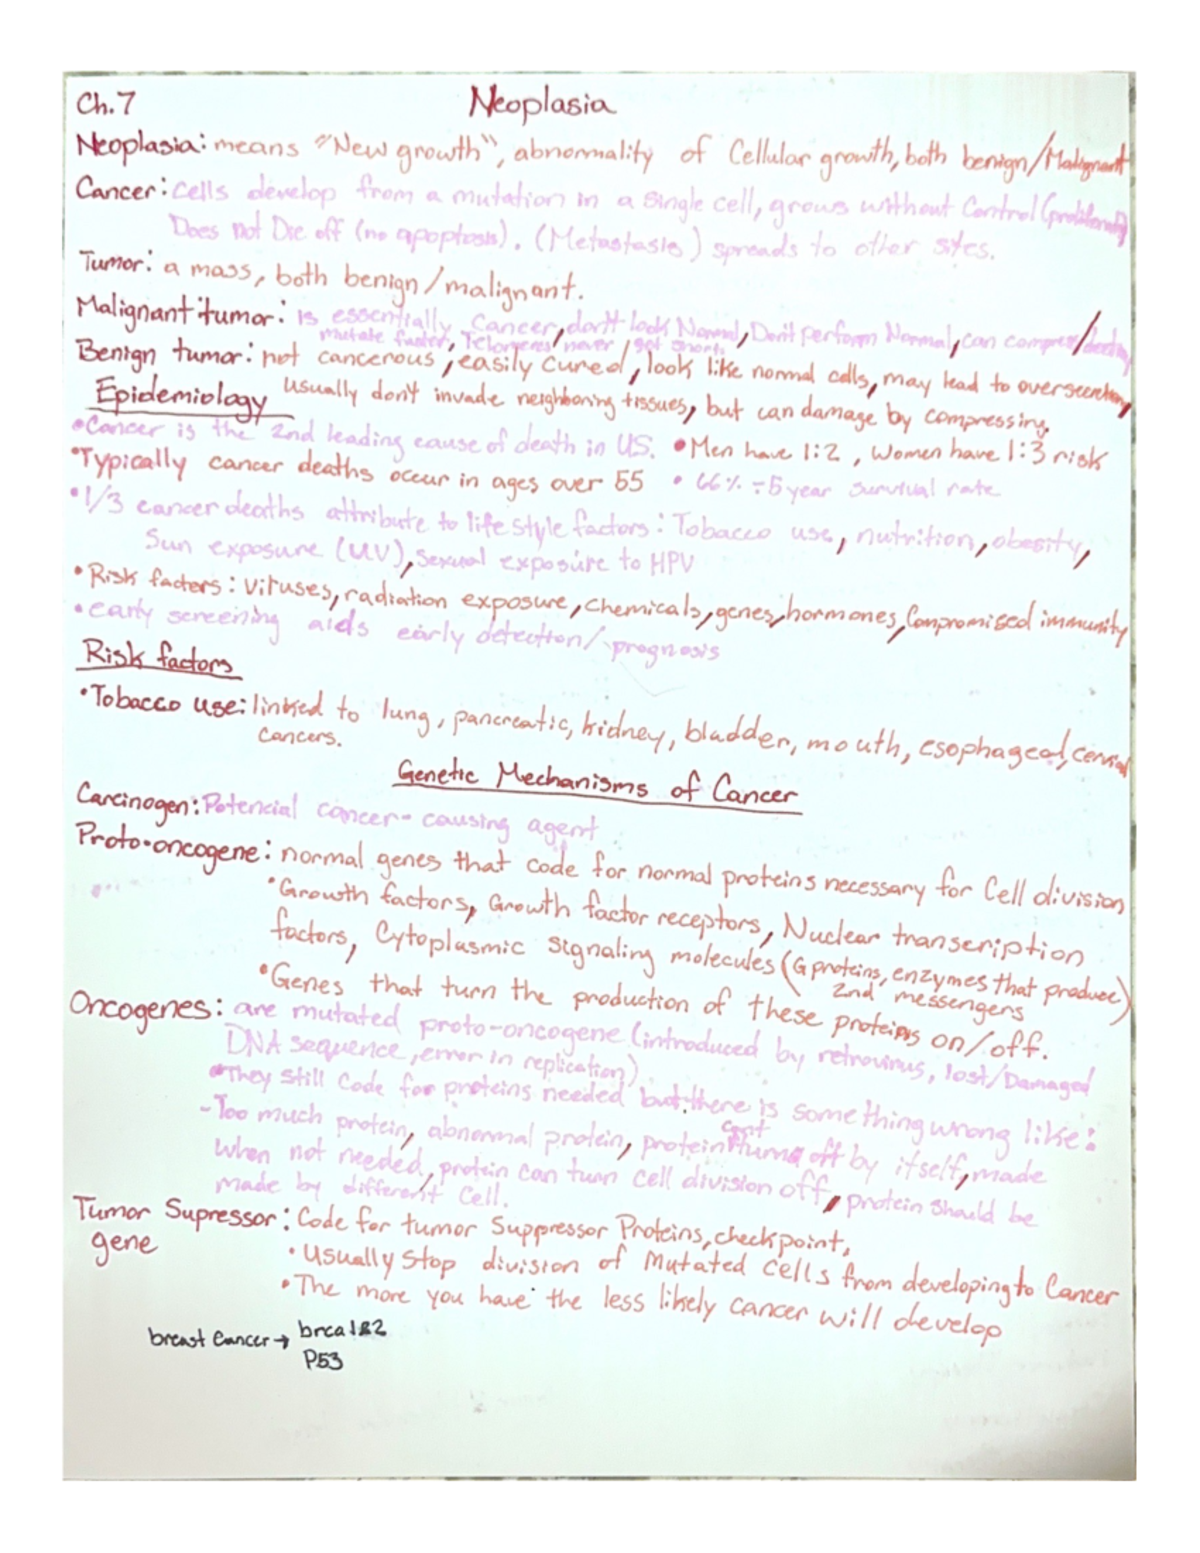 Ch.7 Neoplasia
Neoplasia: means "New growth", abnormality of Cellular growth, both benign/Malignant
Cancer: Cells develop from a mutation in a single cell, grows without Control
Does not Die off (no apoptosis). (Metastasis) spreads to other sites.
Tumor: a mass, both benign/malignant.
Malignant tumor: is essentially Cancer, don't look Normal, Don't perform Normal, can compress/
mutate faster, never get short.
Benign tumor: not cancerous, easily Cured, look like normal cells, may lead to oversecretion,
Epidemiology usually don't invade neighboring tissues, but can damage by compressing.
•Cancer is the 2nd leading cause of death in US. •Men have 1:2, Women have 1:3 risk
•Typically cancer deaths occur in ages over 55 • 66% ÷5 year survival rate
•1/3 cancer deaths attribute to life style factors: Tobacco use, nutrition, obesity,
Sun exposure (UV), sexual exposure to HPV
•Risk factors: Viruses, radiation exposure, chemicals, genes, hormones, Compromised immunity
•early screening aids early detection/prognosis
Risk factors
•Tobacco use: linked to lung, pancreatic, kidney, bladder, mouth, esophageal, cervical
cancers.
Genetic Mechanisms of Cancer
Carcinogen: Potencial cancer-causing agent
Proto-oncogene: normal genes that code for normal proteins necessary for Cell division
•Growth factors, Growth factor receptors, Nuclear transcription
factors, Cytoplasmic Signaling molecules (G proteins, enzymes that produce)
2nd messengers
•Genes that turn the production of these proteins on/off.
Oncogenes: are mutated proto-oncogene (introduced by retrovirus, lost/Damaged
DNA sequence, error in replication)
•They still Code for proteins needed but there is something wrong like:
-Too much protein, abnormal protein, protein cant turn off by itself, made
when not needed, protein can turn cell division off, protein should be
made by different Cell.
Tumor Supressor: Code for tumor Suppressor Proteins, checkpoint,
gene
•Usually Stop division of Mutated Cells from developing to Cancer
•The more you have the less likely cancer will develop
breast Cancer → brca1&2
P53